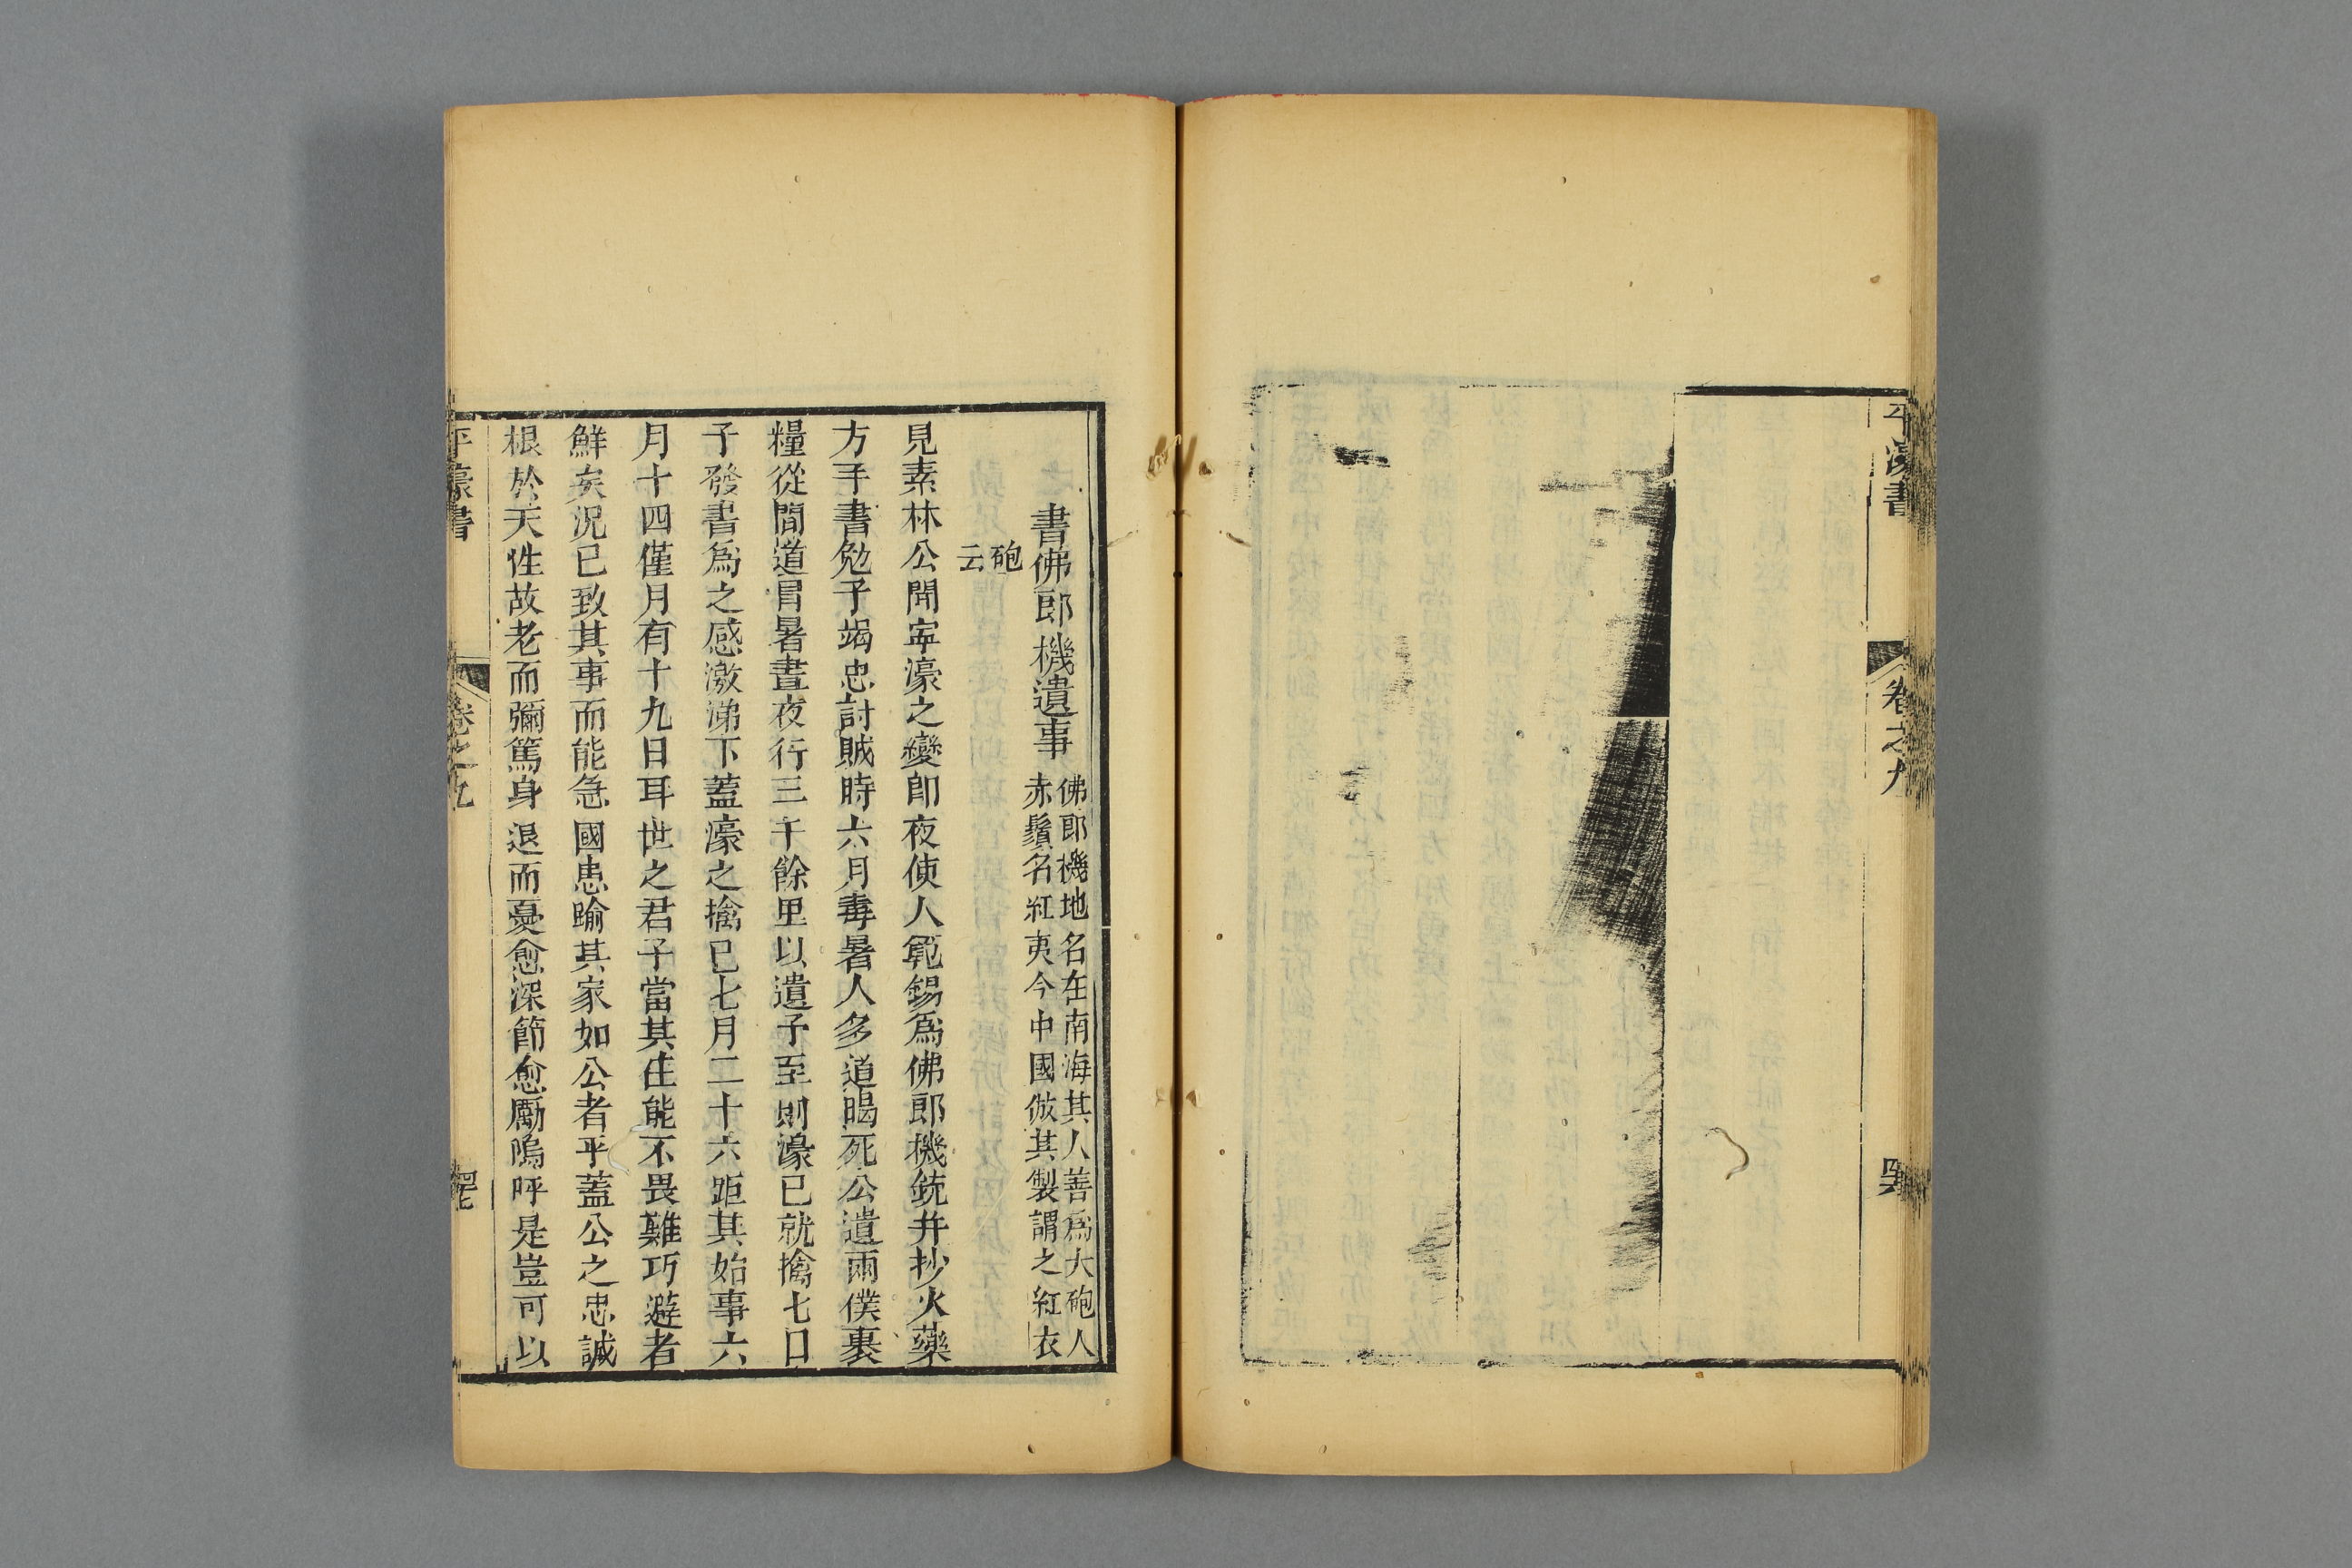 平濠書
卷之九
書佛郎機遺事
佛郎機地名在南海其人善爲大砲人
赤鬚名紅夷今中國倣其製謂之紅衣
砲
云
見素林公聞寧濠之變卽夜使人範錫爲佛郎機銃并抄火藥
方手書勉予竭忠討賊時六月毒暑人多道暍死公遣兩僕裹
糧從間道冒暑晝夜行三千餘里以遺予至則濠已就擒七日
予發書爲之感激涕下蓋濠之擒已七月二十六距其始事六
月十四僅月有十九日耳世之君子當其任能不畏難巧避者
鮮矣況已致其事而能急國患踰其家如公者乎蓋公之忠誠
根於天性故老而彌篤身退而憂愈深節愈勵嗚呼是豈可以
平濠書
卷之九